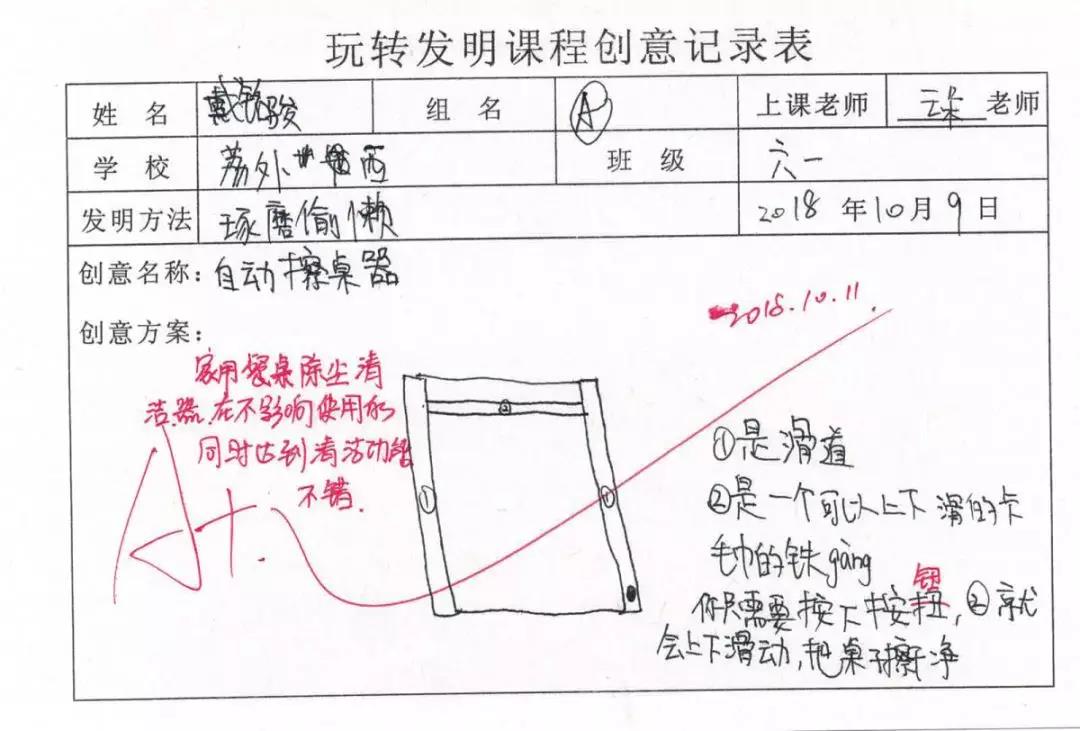 玩转发明课程创意记录表
姓 名 戴 骏 组 名 A 上课老师 老师
学 校 荔外 西 班 级 六一
发明方法 琢磨偷懒 2018 年 10 月 9 日
创意名称：自动擦桌器
2018.10.11.
创意方案：
家用餐桌除尘清
洁器.在不影响使用的
同时达到清洁功能
不错.
A+.
②
① ①
①是滑道
②是一个可以上下滑的卡
毛巾的铁gàng
钮
你只需要按下按扭，②就
会上下滑动，把桌子擦干净